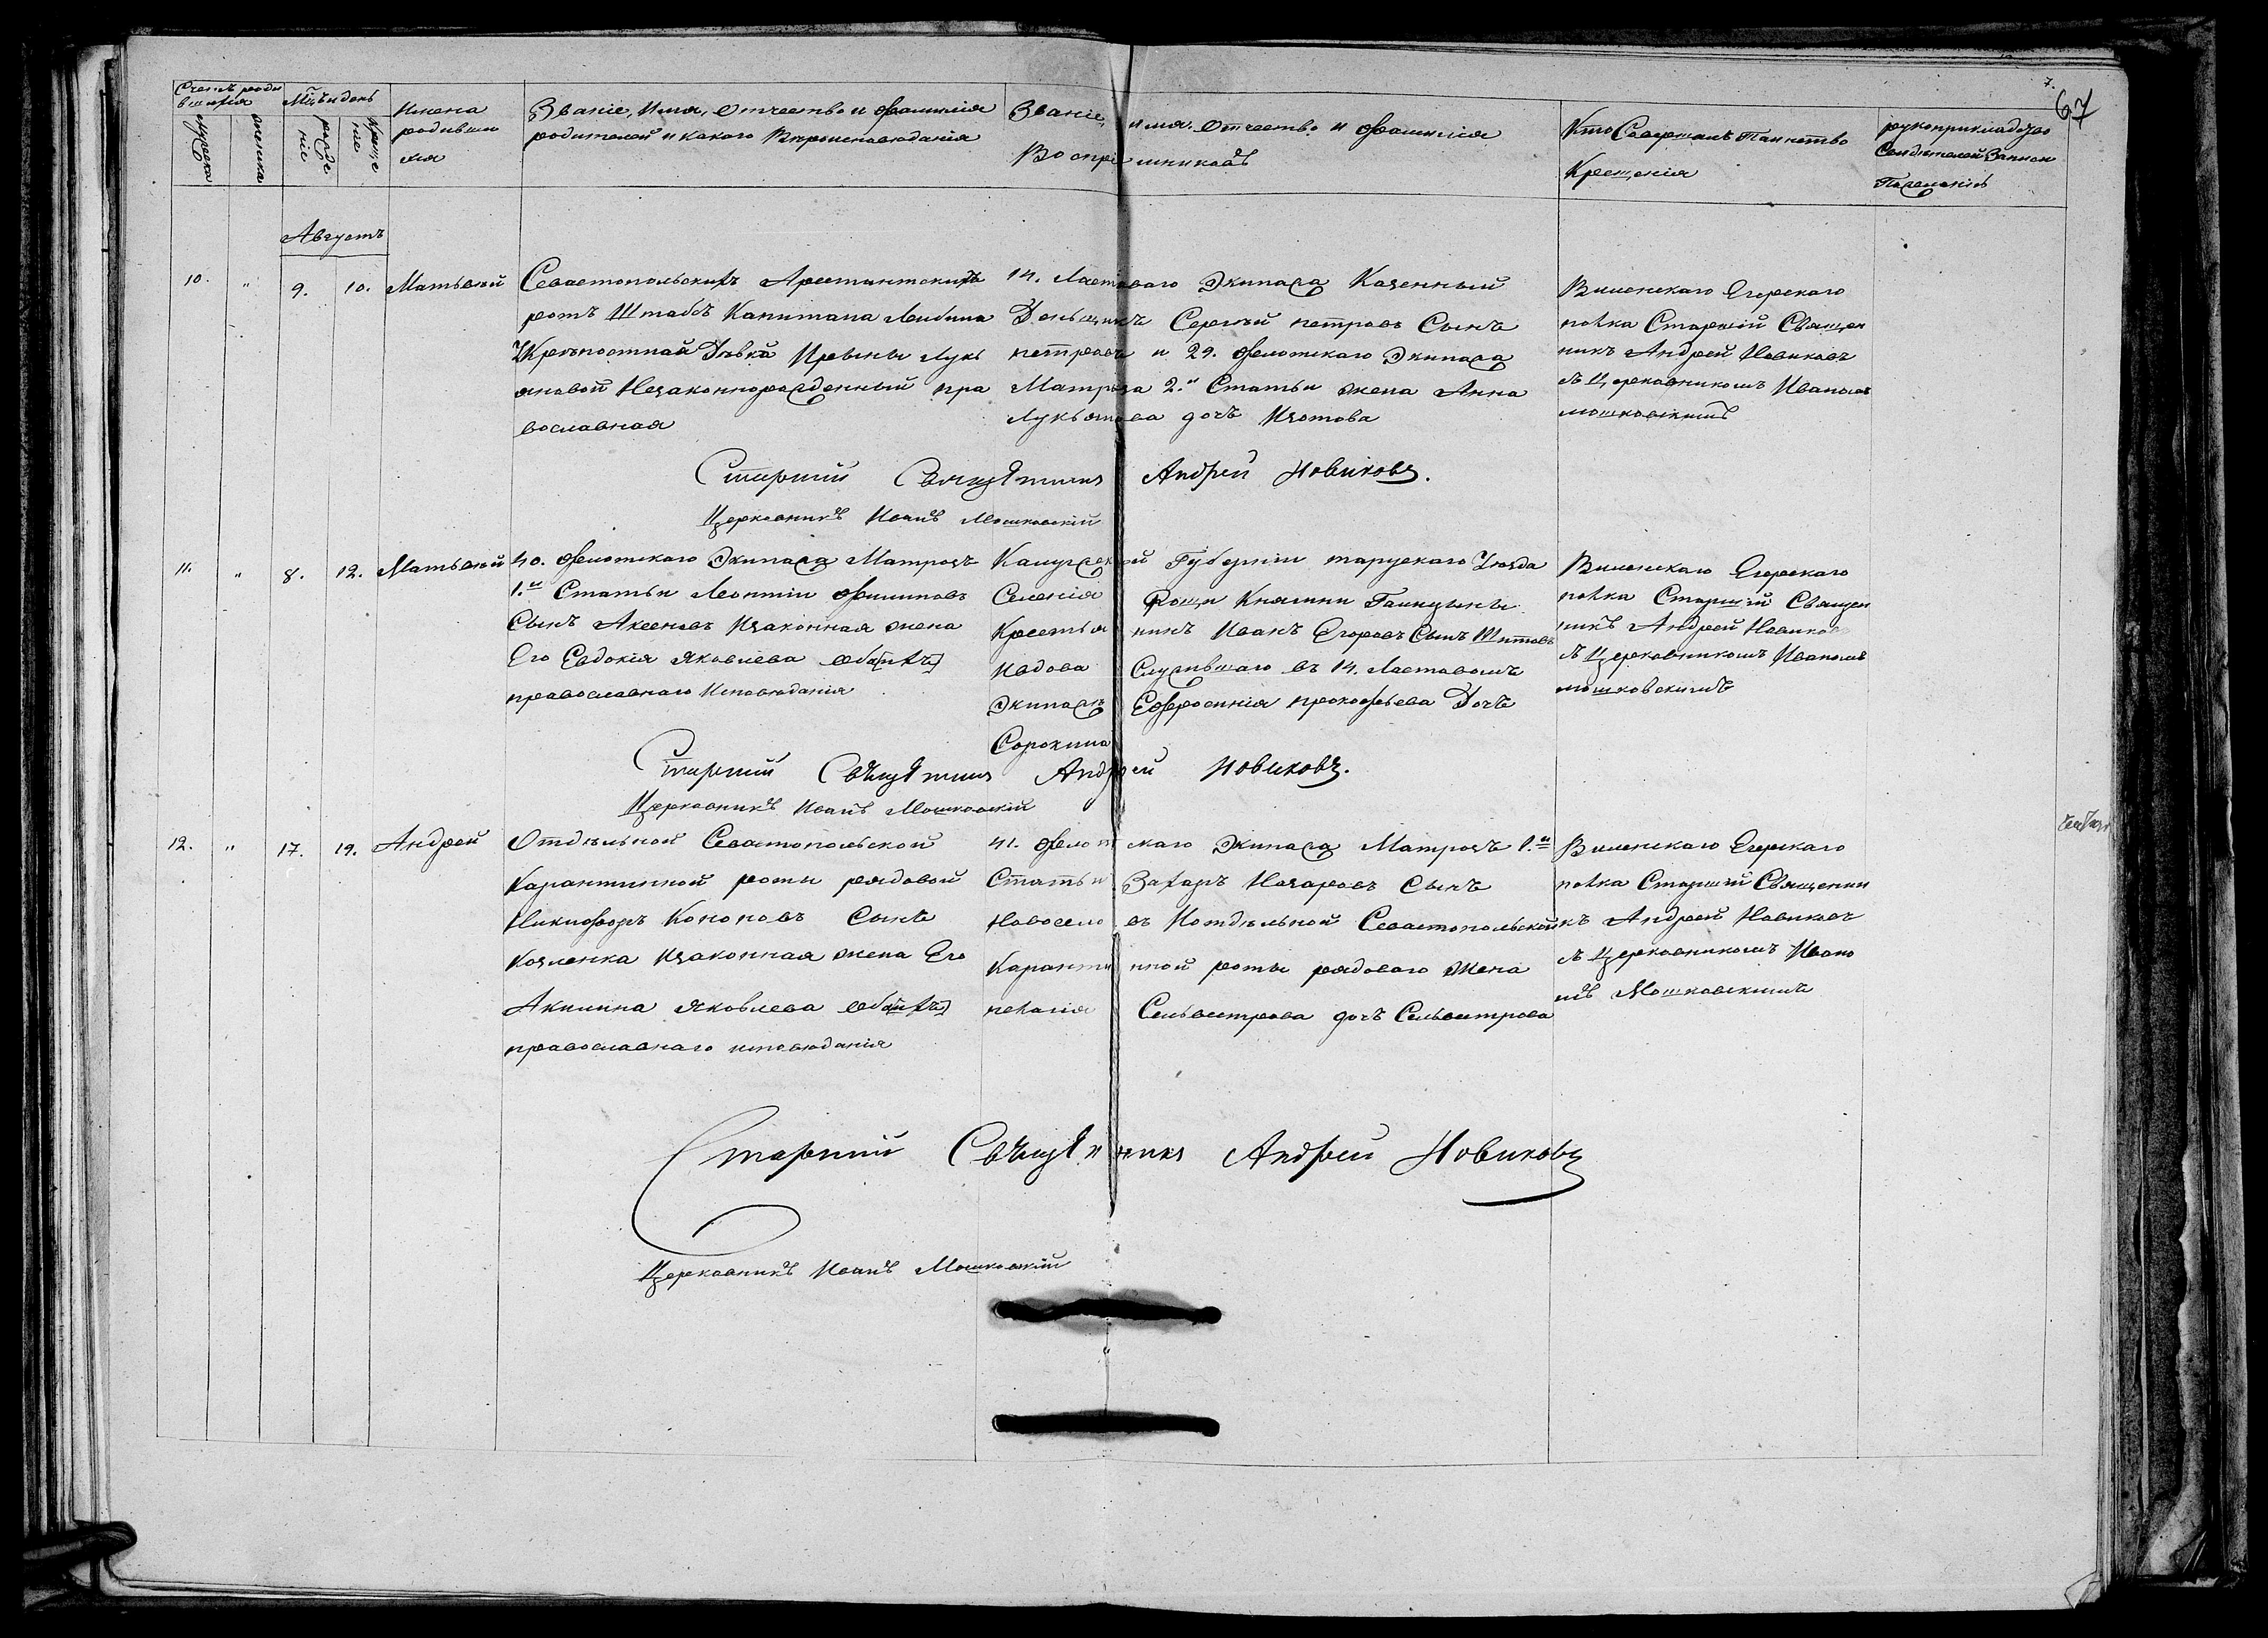 7.
67
Счетъ роди
вшихся
Мцъ и день
Мужеска
женска
рожде
ніе
Креще
ніе
Имена
родивши
хся
Званіе, Имя, Отчество и фамилія
родителей и какого Вѣроисповѣданія
Званіе, имя, Отчество и фамилія
Воспріемниковъ
Кто Совершалъ Таинство
Крещенія
рукоприкладство
Свидѣтелей Записи
По желанію
Августъ
10. " 9. 10. Матьвѣй
Севастопольскихъ Арестантскихъ
ротъ Штабсъ Капитана
Крѣпостной Дѣвки Ирыны Лукь
яновой Незаконнорожденный пра
вославная
14. Ластоваго Экипажа Казенный
Деньщикъ Сергѣй петровъ Сынъ
петровъ и 29. Флотскаго Экипажа
Матроза 2.й Статьи жена Анна
Лукьянова дочь Изотова
Виленскаго Егерскаго
полка Старшій Священ
никъ Андрей Новиковъ
съ Церковникомъ Иваномъ
мошковскимъ
Старшій Священникъ Андрей Новиковъ.
Церковникъ Иванъ Мошковскій
11. " 8. 12. Матьвѣй
40. Флотскаго Экипажа Матрозъ
1.й Статьи Леонтій Филиповъ
Сынъ Аксеновъ Изаконная жена
Его Евдокія Яковлева обаихъ
православнаго Исповѣданія
Калужской Губерніи тарускаго Уѣзда
Селенія Рощи Княгини Галицыны
Крестьянинъ Иванъ Егоровъ Сынъ Титовъ
Ивдова Служившаго въ 14. Ластовомъ
Экипажѣ Ефросинія прокофьева Дочь
Сорокина
Виленскаго Егерскаго
полка Старшій Священ
никъ Андрей Новиковъ
съ Церковникомъ Иваномъ
мошковскимъ
Старшій Священникъ Андрей Новиковъ.
Церковникъ Иванъ Мошковскій
12. " 17. 19. Андрей
Отдѣльной Севастопольской
Карантинной роты рядовой
Никифоръ Кононовъ Сынъ
Козленка Изаконная жена Его
Акилина Яковлева обаихъ
православнаго исповѣданія
41. Флотскаго Экипажа Матрозъ 1.й
Статьи Захаръ Назаровъ Сынъ
Новоселовъ Иотдѣльной Севастопольской
Карантинной роты рядоваго Жена
пелагія Сельвестрова дочь Сельвестрова
Виленскаго Егерскаго
полка Старшій Священни
къ Андрей Новиковъ
съ Церковникомъ Ивано
мъ Мошковскимъ
Старшій Священникъ Андрей Новиковъ
Церковникъ Иванъ Мошковскій